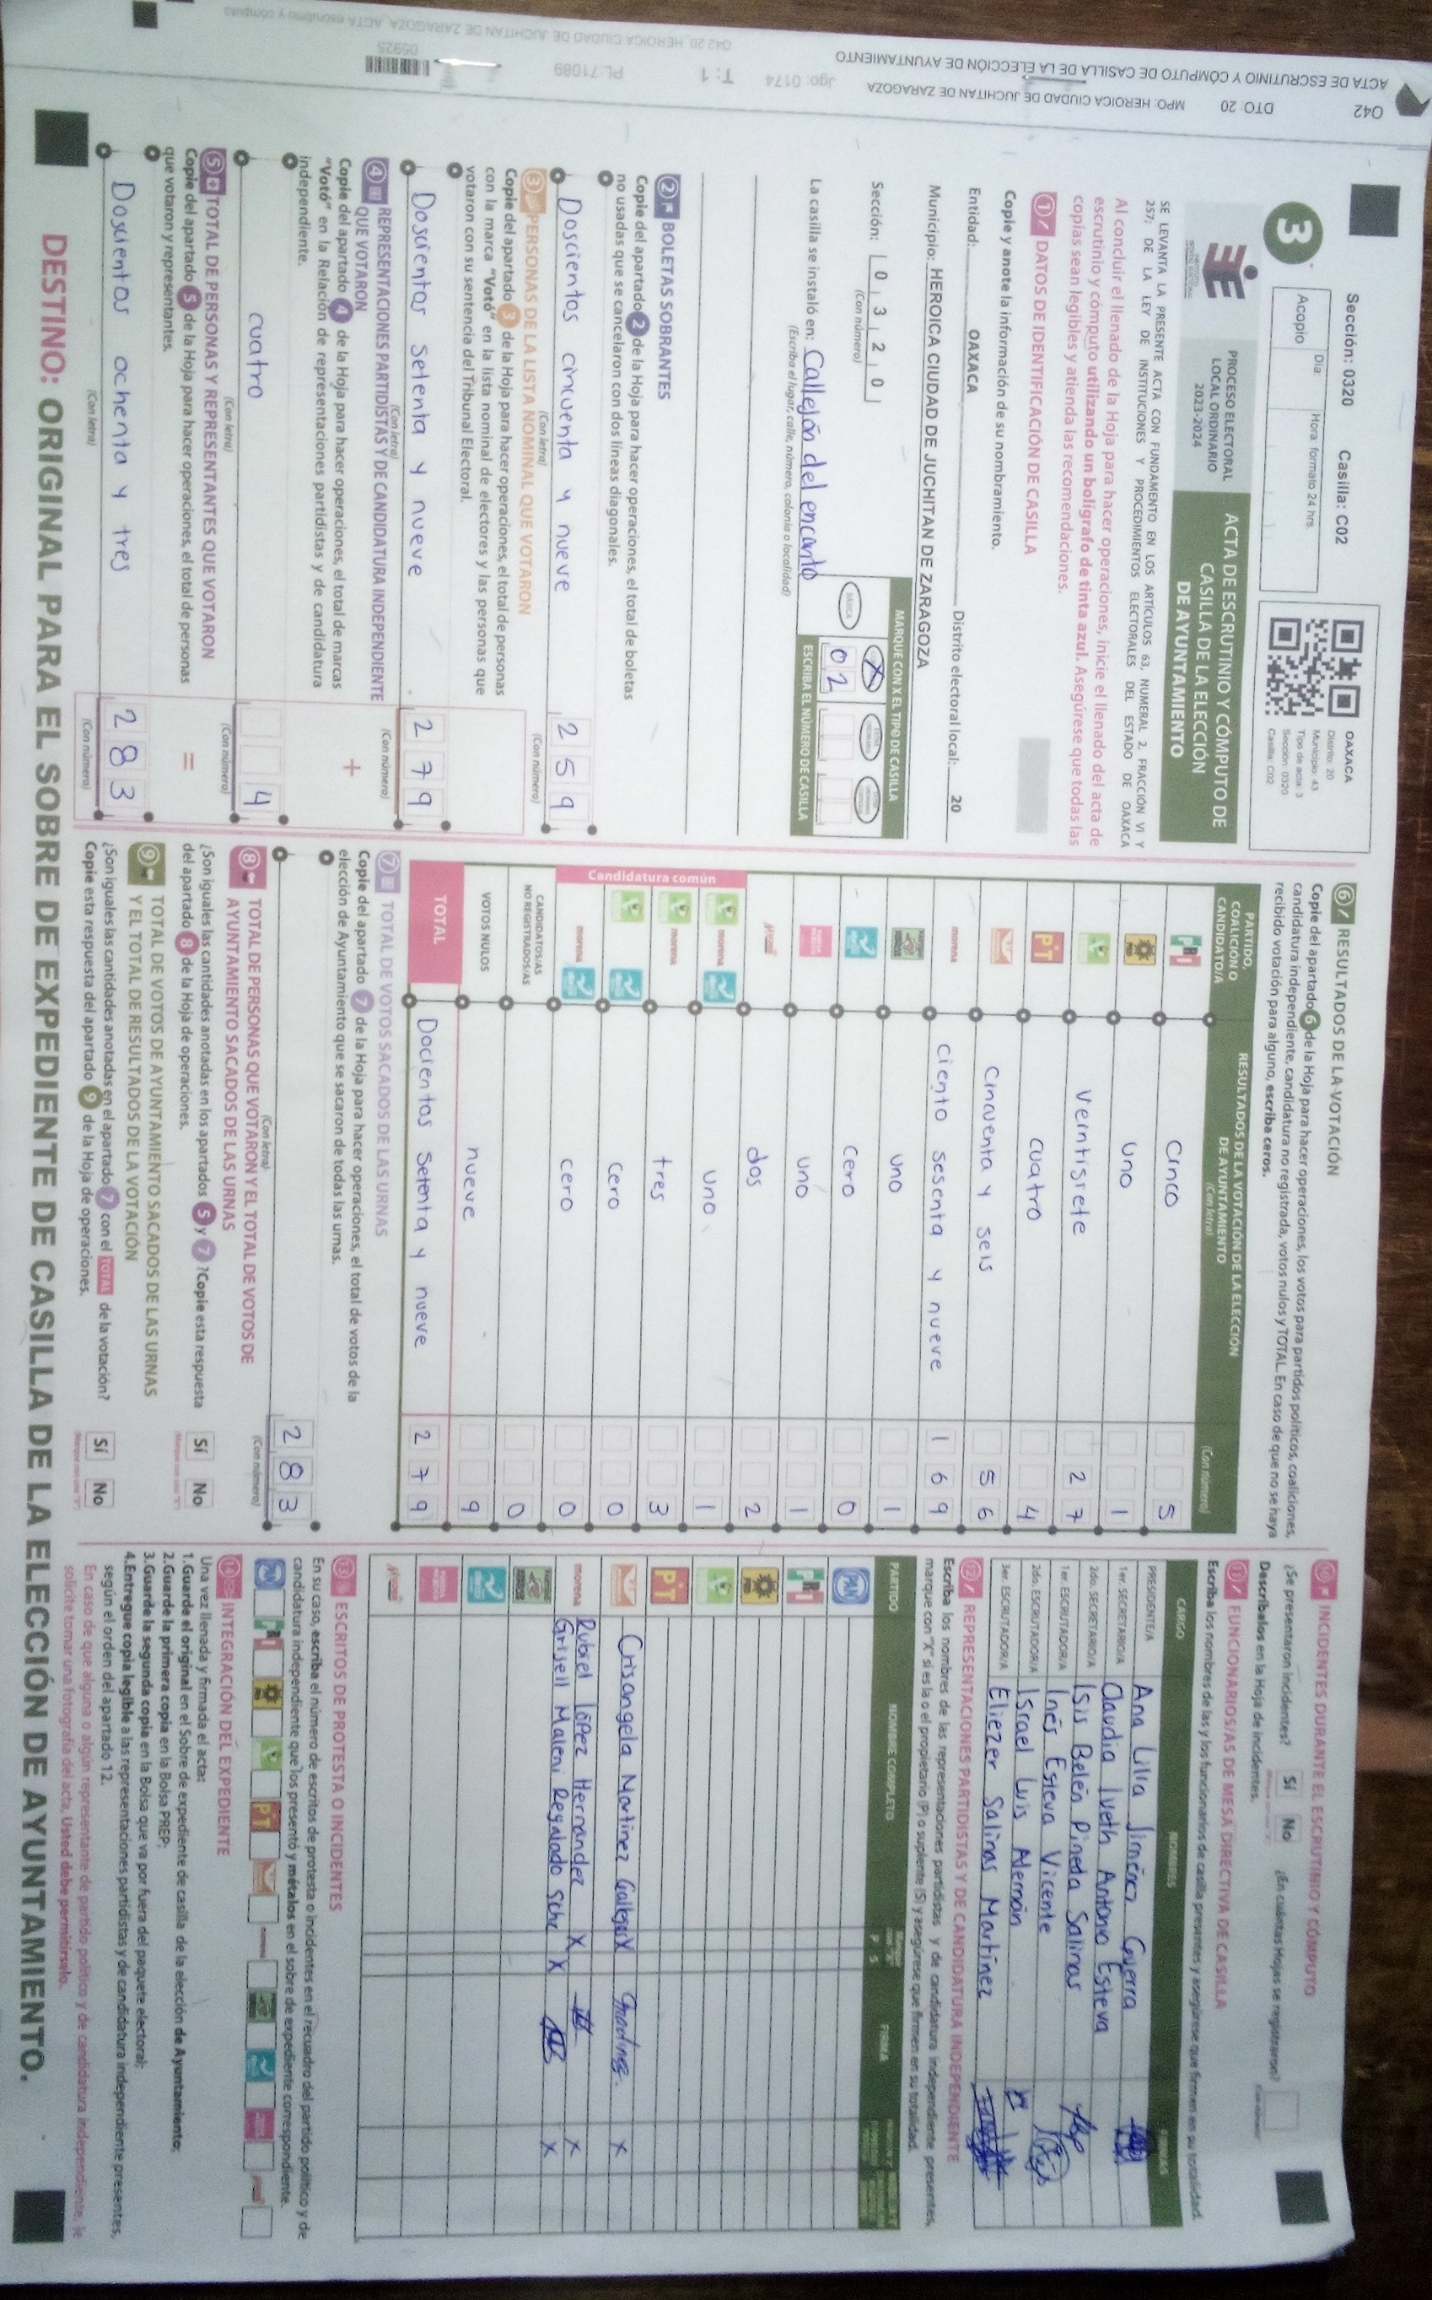 ACTA DE ESCRUTINIO Y CÓMPUTO DE CASILLA DE LA ELECCIÓN DE AYUNTAMIENTO
042 DTO: 20 MPO: HEROICA CIUDAD DE JUCHITAN DE ZARAGOZA
Sección: 0320 Casilla: C02
3
Acopio
Día:
Hora: formato 24 hrs.
OAXACA
Distrito: 20
Municipio: 43
Tipo de acta: 3
Sección: 0320
Casilla: C02
PROCESO ELECTORAL
LOCAL ORDINARIO
2023-2024
ACTA DE ESCRUTINIO Y CÓMPUTO DE
CASILLA DE LA ELECCIÓN
DE AYUNTAMIENTO
SE LEVANTA LA PRESENTE ACTA CON FUNDAMENTO EN LOS ARTÍCULOS 63, NUMERAL 2, FRACCIÓN VI Y
257; DE LA LEY DE INSTITUCIONES Y PROCEDIMIENTOS ELECTORALES DEL ESTADO DE OAXACA
Al concluir el llenado de la Hoja para hacer operaciones, inicie el llenado del acta de
escrutinio y cómputo utilizando un bolígrafo de tinta azul. Asegúrese que todas las
copias sean legibles y atienda las recomendaciones.
1 DATOS DE IDENTIFICACIÓN DE CASILLA
Copie y anote la información de su nombramiento.
Entidad: OAXACA Distrito electoral local: 20
Municipio: HEROICA CIUDAD DE JUCHITAN DE ZARAGOZA
Sección: 0 3 2 0
(Con número)
MARQUE CON X EL TIPO DE CASILLA
BÁSICA
X
0 2
ESCRIBA EL NÚMERO DE CASILLA
La casilla se instaló en: Callejón del encanto
(Escriba el lugar, calle, número, colonia o localidad)
2 BOLETAS SOBRANTES
Copie del apartado 2 de la Hoja para hacer operaciones, el total de boletas
no usadas que se cancelaron con dos líneas diagonales.
Doscientos cincuenta y nueve 2 5 9
(Con letra) (Con número)
3 PERSONAS DE LA LISTA NOMINAL QUE VOTARON
Copie del apartado 3 de la Hoja para hacer operaciones, el total de personas
con la marca "Votó" en la lista nominal de electores y las personas que
votaron con su sentencia del Tribunal Electoral.
Doscientos setenta y nueve 2 7 9
(Con letra) (Con número)
4 REPRESENTACIONES PARTIDISTAS Y DE CANDIDATURA INDEPENDIENTE
QUE VOTARON
Copie del apartado 4 de la Hoja para hacer operaciones, el total de marcas
"Votó" en la Relación de representaciones partidistas y de candidatura
independiente.
+
cuatro 4
(Con letra) (Con número)
5 TOTAL DE PERSONAS Y REPRESENTANTES QUE VOTARON
Copie del apartado 5 de la Hoja para hacer operaciones, el total de personas
que votaron y representantes.
=
Doscientos ochenta y tres 2 8 3
(Con letra) (Con número)
6 RESULTADOS DE LA VOTACIÓN
Copie del apartado 6 de la Hoja para hacer operaciones, los votos para partidos políticos, coaliciones,
candidatura independiente, candidatura no registrada, votos nulos y TOTAL. En caso de que no se haya
recibido votación para alguno, escriba ceros.
PARTIDO,
COALICIÓN O
CANDIDATO/A
RESULTADOS DE LA VOTACIÓN DE LA ELECCIÓN
DE AYUNTAMIENTO
(Con letra)
(Con número)
PRI cinco 5
PRD uno 1
veintisiete 2 7
PT cuatro 4
cincuenta y seis 5 6
morena ciento sesenta y nueve 1 6 9
uno 1
cero 0
uno 1
dos 2
Candidatura común
morena uno 1
morena tres 3
cero 0
morena cero 0
CANDIDATOS/AS
NO REGISTRADOS/AS 0
VOTOS NULOS nueve 9
TOTAL Docientos setenta y nueve 2 7 9
7 TOTAL DE VOTOS SACADOS DE LAS URNAS
Copie del apartado 7 de la Hoja para hacer operaciones, el total de votos de la
elección de Ayuntamiento que se sacaron de todas las urnas.
2 8 3
(Con letra) (Con número)
8 TOTAL DE PERSONAS QUE VOTARON Y EL TOTAL DE VOTOS DE
AYUNTAMIENTO SACADOS DE LAS URNAS
¿Son iguales las cantidades anotadas en los apartados 5 y 7? Copie esta respuesta
del apartado 8 de la Hoja de operaciones.
Sí No
9 TOTAL DE VOTOS DE AYUNTAMIENTO SACADOS DE LAS URNAS
Y EL TOTAL DE RESULTADOS DE LA VOTACIÓN
¿Son iguales las cantidades anotadas en el apartado 7 con el TOTAL de la votación?
Copie esta respuesta del apartado 9 de la Hoja de operaciones.
Sí No
10 INCIDENTES DURANTE EL ESCRUTINIO Y CÓMPUTO
¿Se presentaron incidentes? Sí No ¿En cuántas Hojas se registraron?
Descríbalos en la Hoja de incidentes.
11 FUNCIONARIOS/AS DE MESA DIRECTIVA DE CASILLA
Escriba los nombres de las y los funcionarios de casilla presentes y asegúrese que firmen en su totalidad.
CARGO NOMBRES FIRMAS
PRESIDENTE/A Ana Lilia Jiménez Guerra
1er. SECRETARIO/A Claudia Iveth Antonio Esteva
2do. SECRETARIO/A Isis Belén Pineda Salinas
1er. ESCRUTADOR/A Inés Esteva Vicente
2do. ESCRUTADOR/A Israel Luis Alemán
3er. ESCRUTADOR/A Eliezer Salinas Martínez
12 REPRESENTACIONES PARTIDISTAS Y DE CANDIDATURA INDEPENDIENTE
Escriba los nombres de las representaciones partidistas y de candidatura independiente presentes,
marque con "X" si es la o el propietario (P) o suplente (S) y asegúrese que firmen en su totalidad.
PARTIDO NOMBRE COMPLETO P S FIRMA
PAN
PRI
PRD
PT
Crisangela Martinez Gallegos X X
morena Rubiel López Hernandez X X
Grisell Maleni Regalado X X
13 ESCRITOS DE PROTESTA O INCIDENTES
En su caso, escriba el número de escritos de protesta o incidentes en el recuadro del partido político y de
candidatura independiente que los presentó y métalos en el sobre de expediente correspondiente.
14 INTEGRACIÓN DEL EXPEDIENTE
Una vez llenada y firmada el acta:
1.Guarde el original en el Sobre de expediente de casilla de la elección de Ayuntamiento;
2.Guarde la primera copia en la Bolsa PREP;
3.Guarde la segunda copia en la Bolsa que va por fuera del paquete electoral;
4.Entregue copia legible a las representaciones partidistas y de candidatura independiente presentes,
según el orden del apartado 12.
En caso de que alguna o algún representante de partido político y de candidatura independiente, le
solicite tomar una fotografía del acta, Usted debe permitírselo.
DESTINO: ORIGINAL PARA EL SOBRE DE EXPEDIENTE DE CASILLA DE LA ELECCIÓN DE AYUNTAMIENTO.